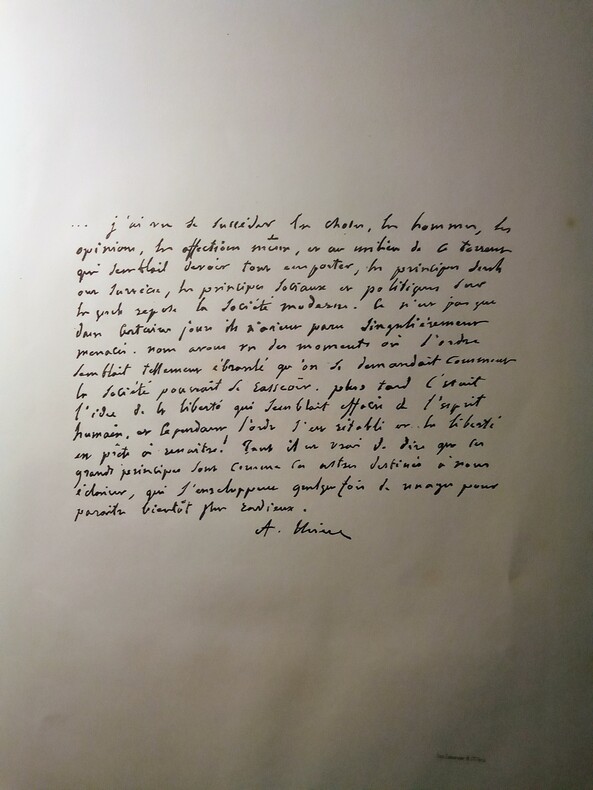 ... j'ai vu se succéder les choses, les hommes, les
opinions, les affections même, et au milieu de ce torrent
qui semblait devoir tout emporter, les principes seuls
ont surnagé, les principes sociaux et politiques sur
lesquels repose la société moderne. Ce n'est pas que
dans certains jours ils n'aient paru singulièrement
menacés. nous avons vu des moments où l'ordre
semblait tellement ébranlé qu'on se demandait comment
la société pourrait se rasseoir. plus tard c'était
l'idée de la liberté qui semblait effacée de l'esprit
humain, et cependant l'ordre s'est rétabli et la liberté
est prête à renaître! Tant il est vrai de dire que ces
grands principes sont comme ces astres destinés à nous
éclairer, qui s'enveloppent quelquefois de nuages pour
paraître bientôt plus radieux.
A. Thiers